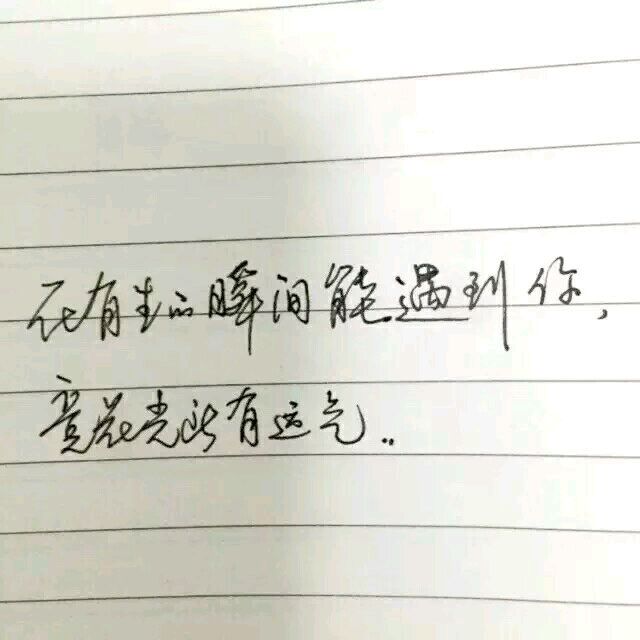 在有生的瞬间能遇到你，
竟花光所有运气..